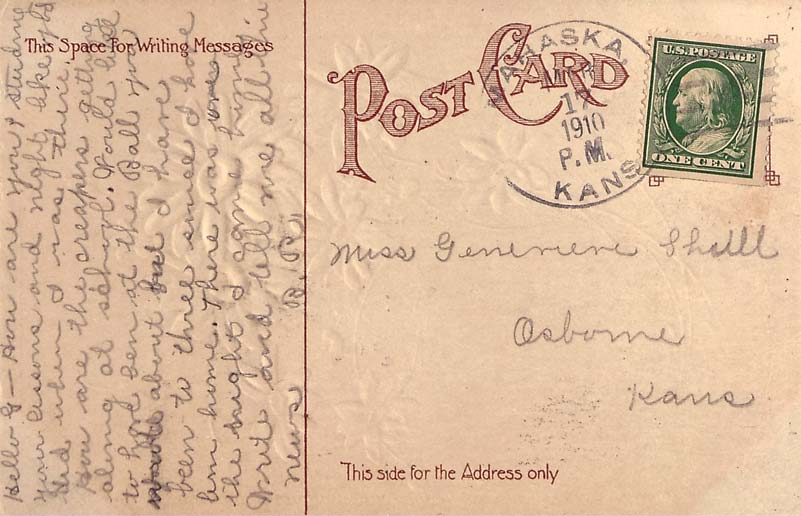 This Space For Writing Messages
POST CARD
MAHASKA,
17
1910
P. M.
KANS
U.S. POSTAGE
ONE CENT
Hello G — How are you, studing
your lessons and night like you
did when I was there.
How are the creapers getting
along at school. Would like
to have ben at the Ball you
about but I have
been to three since I have
ben home. There was one
the night I came home
Write and tell me all the
news B. R.
Miss Genevieve Shill
Osborne
Kans
This side for the Address only